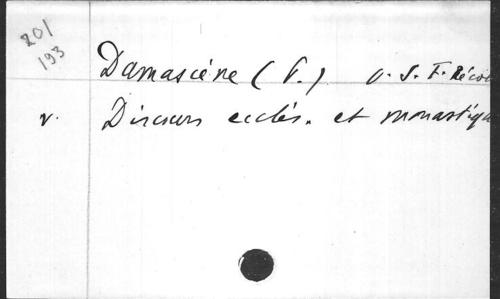 201
193
Damascène (P.) O. S. F. Récol
v. Discours ecclés. et monastiqu